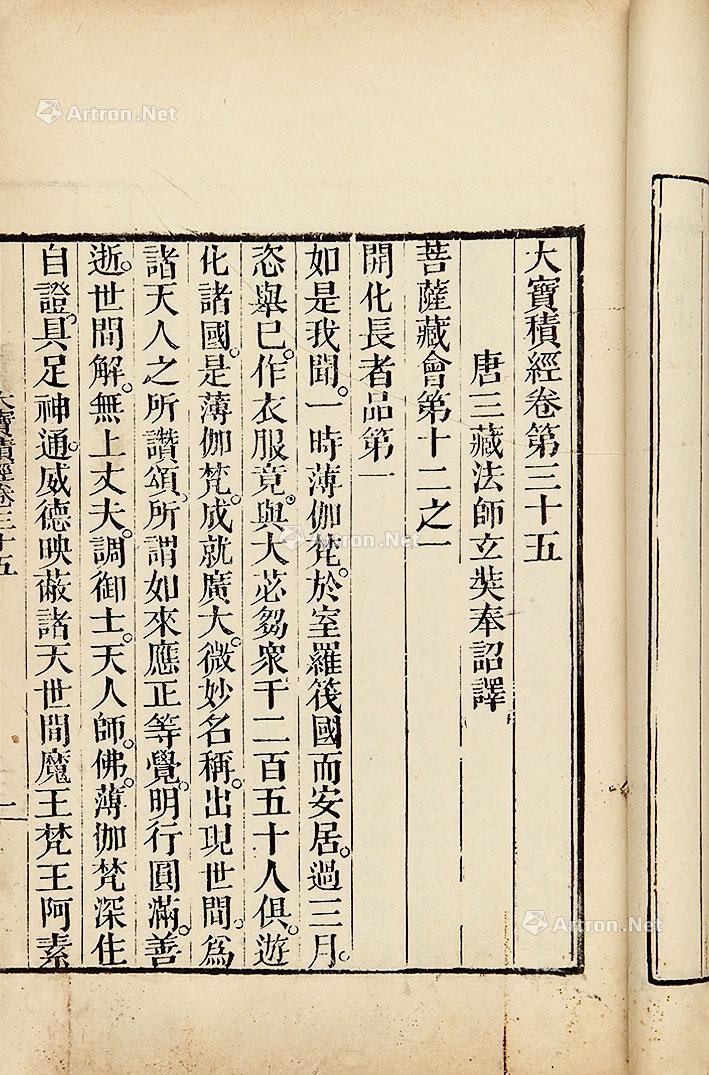 大寶積經卷第三十五
唐三藏法師玄奘奉詔譯
菩薩藏會第十二之一
開化長者品第一
如是我聞。一時薄伽梵。於室羅筏國而安居。過三月。
恣舉已。作衣服竟。與大苾芻衆千二百五十人俱。遊
化諸國。是薄伽梵。成就廣大。微妙名稱。出現世間。爲
諸天人之所讚頌。所謂如來應正等覺。明行圓滿。善
逝。世間解。無上丈夫。調御士。天人師。佛。薄伽梵深住
自證。具足神通。威德映蔽諸天世間魔王梵王阿素
大寶積經卷三十五
一
Artron.Net
Artron.Net
Artron.Net